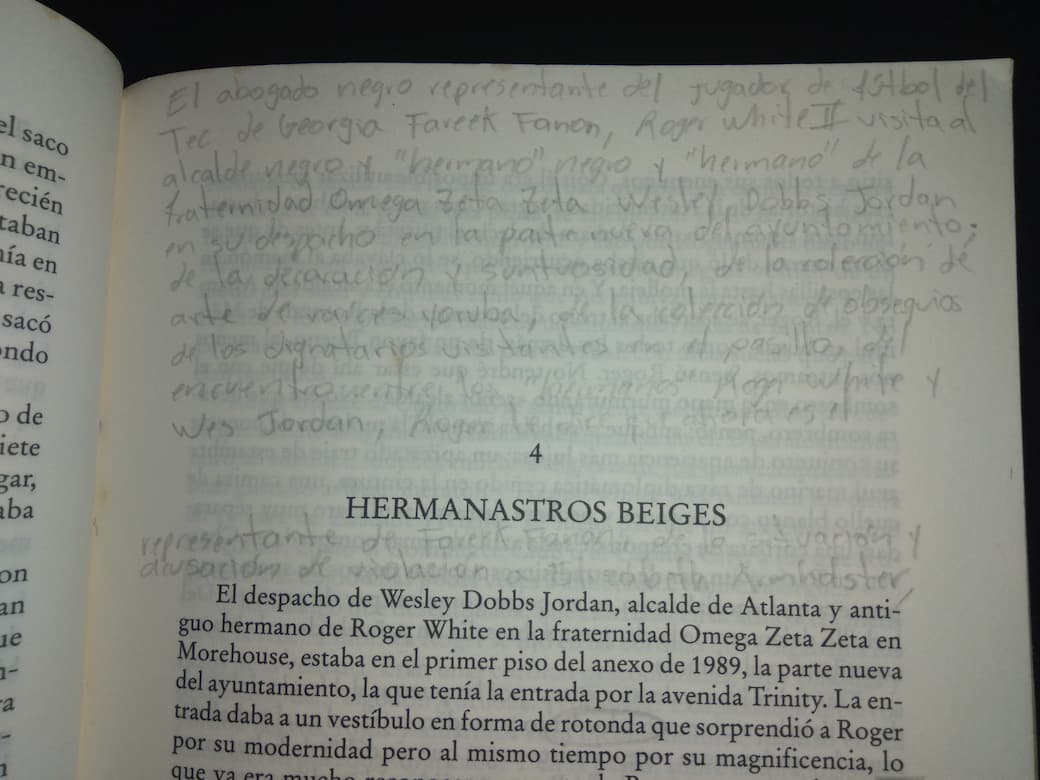 el saco
n em-
recién
taban
ía en
a res-
sacó
ondo
o de
iete
gar,
aba
on
an
ue
n-
ra
El abogado negro representante del jugador de fútbol del
Tec de Georgia Fareek Fanon, Roger White II visita al
alcalde negro y "hermano" negro y "hermano" de la
fraternidad Omega Zeta Zeta Wesley Dobbs Jordan
en su despacho en la parte nueva del ayuntamiento;
de la decoración y suntuosidad, de la colección de
arte de raíces yoruba, de la colección de obsequios
de los dignatarios visitantes en el pasillo, del
encuentro entre los "hermanos" Roger White y
Wes Jordan, Roger le dice
4
HERMANASTROS BEIGES
representante de Fareek Fanon, de la situación y
acusación de violación a la
El despacho de Wesley Dobbs Jordan, alcalde de Atlanta y anti-
guo hermano de Roger White en la fraternidad Omega Zeta Zeta en
Morehouse, estaba en el primer piso del anexo de 1989, la parte nueva
del ayuntamiento, la que tenía la entrada por la avenida Trinity. La en-
trada daba a un vestíbulo en forma de rotonda que sorprendió a Roger
por su modernidad pero al mismo tiempo por su magnificencia, lo
que ya era mucho